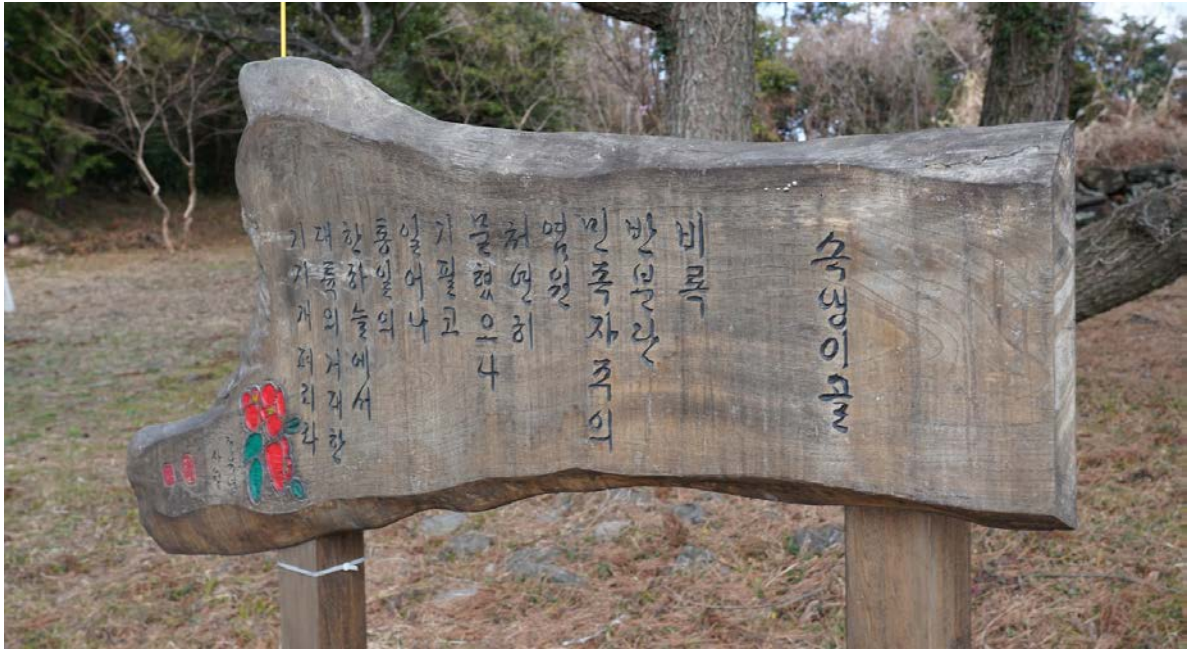 속냉이골
비록
반분단
민족자주의
염원
처연히
몰했으나
기필코
일어나
통일의
한하늘에서
대륙의 거대한
기개 펴리라